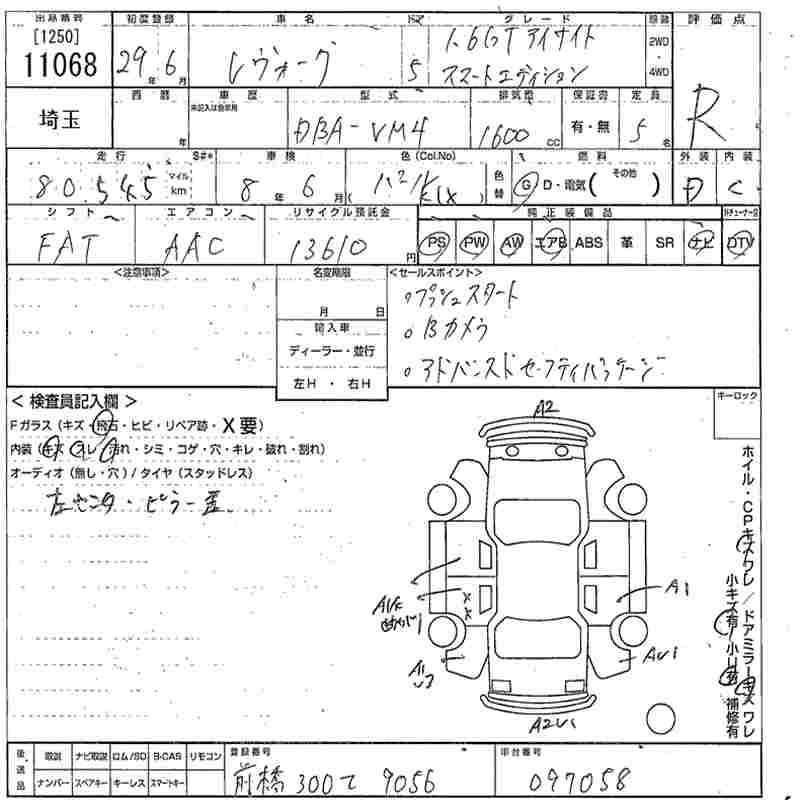 出品番号 初度登録 車名 ドア グレード 駆動 評価点
[1250]
11068 29年6月 レヴォーグ 5 1.6GTアイサイト スマートエディション 2WD・4WD R
埼玉 西暦 年 車歴 型式 排気量 保証書 定員
未記入は自家用
DBA-VM4 1600cc 有・無 5名
走行 S#* 車検 色(Col.No) 燃料 外装 内装
80,545 マイル km 8年6月 パール (K1X) 色替 G D・電気( その他 ) D C
シフト エアコン リサイクル預託金 純正装備品
FAT AAC 13610円 PS PW AW エアB ABS 革 SR ナビ DTV
<注意事項> 名変期限 <セールスポイント>
月 日
輸入車
ディーラー・並行
左H・右H
。プッシュスタート
。Bカメラ
。アドバンスドセーフティパッケージ
キーロック
<検査員記入欄>
Fガラス(キズ・飛石・ヒビ・リペア跡・X要)
内装(キズ・スレ・汚れ・シミ・コゲ・穴・キレ・破れ・割れ)
オーディオ(無し・穴)/タイヤ(スタッドレス)
左センタ・ピラー歪
A2
A1
AU1
A2U1
ホイル・CPキズワレ/ドアミラーキズワレ
小キズ有/小U有/補修有
後送品 取説 ナビ取説 ロム/SD B-CAS リモコン
ナンバー スペアキー キーレス スマートキー
登録番号 車台番号
前橋 300 て 9056 097058